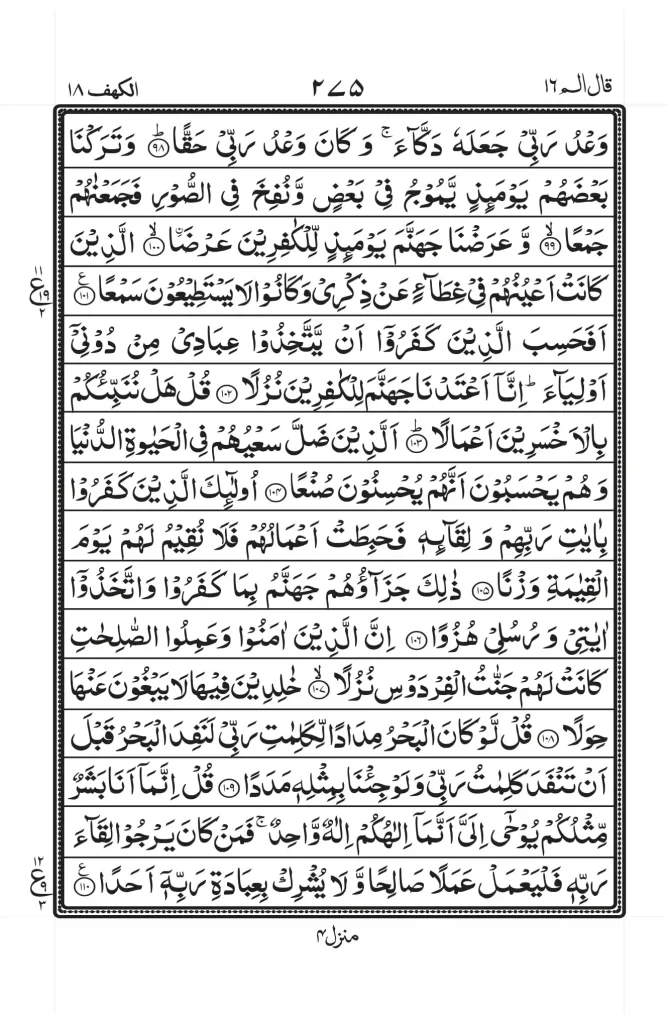 قال الم ١٦
٢٧٥
الكهف ١٨
وَعْدُ رَبِّيْ جَعَلَهٗ دَكَّآءَ ۚ وَ كَانَ وَعْدُ رَبِّيْ حَقًّا ؕ۝۹۸ وَتَرَكْنَا
بَعْضَهُمْ يَوْمَىِٕذٍ يَّمُوْجُ فِيْ بَعْضٍ وَّنُفِخَ فِي الصُّوْرِ فَجَمَعْنٰهُمْ
جَمْعًا ۙ۝۹۹ وَّ عَرَضْنَا جَهَنَّمَ يَوْمَىِٕذٍ لِّلْكٰفِرِيْنَ عَرْضَا ۙ۝۱۰۰ الَّذِيْنَ
كَانَتْ اَعْيُنُهُمْ فِيْ غِطَآءٍ عَنْ ذِكْرِيْ وَكَانُوْا لَا يَسْتَطِيْعُوْنَ سَمْعًا ۝۱۰۱ ع
١١
ع ١٩
٢
اَفَحَسِبَ الَّذِيْنَ كَفَرُوْۤا اَنْ يَّتَّخِذُوْا عِبَادِيْ مِنْ دُوْنِيْۤ
اَوْلِيَآءَ ؕ اِنَّاۤ اَعْتَدْنَا جَهَنَّمَ لِلْكٰفِرِيْنَ نُزُلًا ۝۱۰۲ قُلْ هَلْ نُنَبِّئُكُمْ
بِالْاَخْسَرِيْنَ اَعْمَالًا ؕ۝۱۰۳ اَلَّذِيْنَ ضَلَّ سَعْيُهُمْ فِي الْحَيٰوةِ الدُّنْيَا
وَهُمْ يَحْسَبُوْنَ اَنَّهُمْ يُحْسِنُوْنَ صُنْعًا ۝۱۰۴ اُولٰٓىِٕكَ الَّذِيْنَ كَفَرُوْا
بِاٰيٰتِ رَبِّهِمْ وَ لِقَآىِٕهٖ فَحَبِطَتْ اَعْمَالُهُمْ فَلَا نُقِيْمُ لَهُمْ يَوْمَ
الْقِيٰمَةِ وَزْنًا ۝۱۰۵ ذٰلِكَ جَزَآؤُهُمْ جَهَنَّمُ بِمَا كَفَرُوْا وَاتَّخَذُوْۤا
اٰيٰتِيْ وَ رُسُلِيْ هُزُوًا ۝۱۰۶ اِنَّ الَّذِيْنَ اٰمَنُوْا وَعَمِلُوا الصّٰلِحٰتِ
كَانَتْ لَهُمْ جَنّٰتُ الْفِرْدَوْسِ نُزُلًا ۙ۝۱۰۷ خٰلِدِيْنَ فِيْهَا لَا يَبْغُوْنَ عَنْهَا
حِوَلًا ۝۱۰۸ قُلْ لَّوْ كَانَ الْبَحْرُ مِدَادًا لِّكَلِمٰتِ رَبِّيْ لَنَفِدَ الْبَحْرُ قَبْلَ
اَنْ تَنْفَدَ كَلِمٰتُ رَبِّيْ وَلَوْ جِئْنَا بِمِثْلِهٖ مَدَدًا ۝۱۰۹ قُلْ اِنَّمَاۤ اَنَا بَشَرٌ
مِّثْلُكُمْ يُوْحٰۤى اِلَيَّ اَنَّمَاۤ اِلٰهُكُمْ اِلٰهٌ وَّاحِدٌ ۚ فَمَنْ كَانَ يَرْجُوْا لِقَآءَ
رَبِّهٖ فَلْيَعْمَلْ عَمَلًا صَالِحًا وَّ لَا يُشْرِكْ بِعِبَادَةِ رَبِّهٖۤ اَحَدًا ۝۱۱۰ ع
١٢
ع ٩
٣
منزل ۴